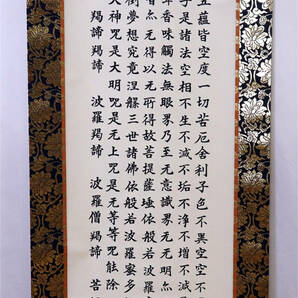 五蘊皆空度一切苦厄舍利子色不異空空不
子是諸法空相不生不滅不垢不浄不增不減
声香味觸法無眼界乃至无意識界无无明亦
智亦无得以无所得故菩提薩埵依般若波羅
倒夢想究竟涅槃三世諸佛依般若波羅蜜多
大神咒是大明咒是无上咒是无等等咒能除
羯諦羯諦 波羅羯諦 波羅僧羯諦 菩